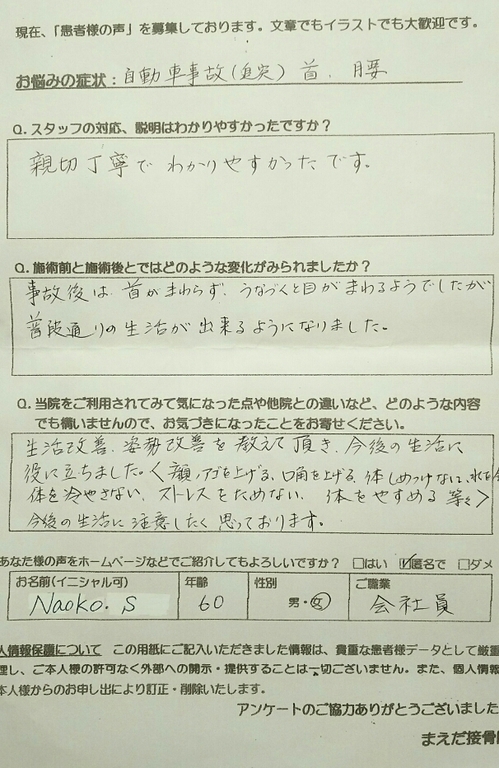 現在、「患者様の声」を募集しております。文章でもイラストでも大歓迎です。
お悩みの症状：自動車事故(追突) 首、腰
Q.スタッフの対応、説明はわかりやすかったですか？
親切丁寧で わかりやすかったです。
Q.施術前と施術後とではどのような変化がみられましたか？
事故後は、首がまわらず、うなづくと目がまわるようでしたが
普段通りの生活が出来るようになりました。
Q.当院をご利用されてみて気になった点や他院との違いなど、どのような内容
でも構いませんので、お気づきになったことをお寄せください。
生活改善、姿勢改善を教えて頂き、今後の生活に
役に立ちました。<顔、アゴを上げる、口角を上げる、体しめつけない、水を
体を冷やさない、ストレスをためない、体をやすめる 等々>
今後の生活に注意したく思っております。
あなた様の声をホームページなどでご紹介してもよろしいですか？ □はい ☑匿名で □ダメ
お名前(イニシャル可) 年齢 性別 ご職業
Naoko.S 60 男・女 会社員
人情報保護について この用紙にご記入いただきました情報は、貴重な患者様データとして厳重
理し、ご本人様の許可なく外部への開示・提供することは一切ございません。また、個人情報
本人様からのお申し出により訂正・削除いたします。
アンケートのご協力ありがとうございました
まえだ接骨